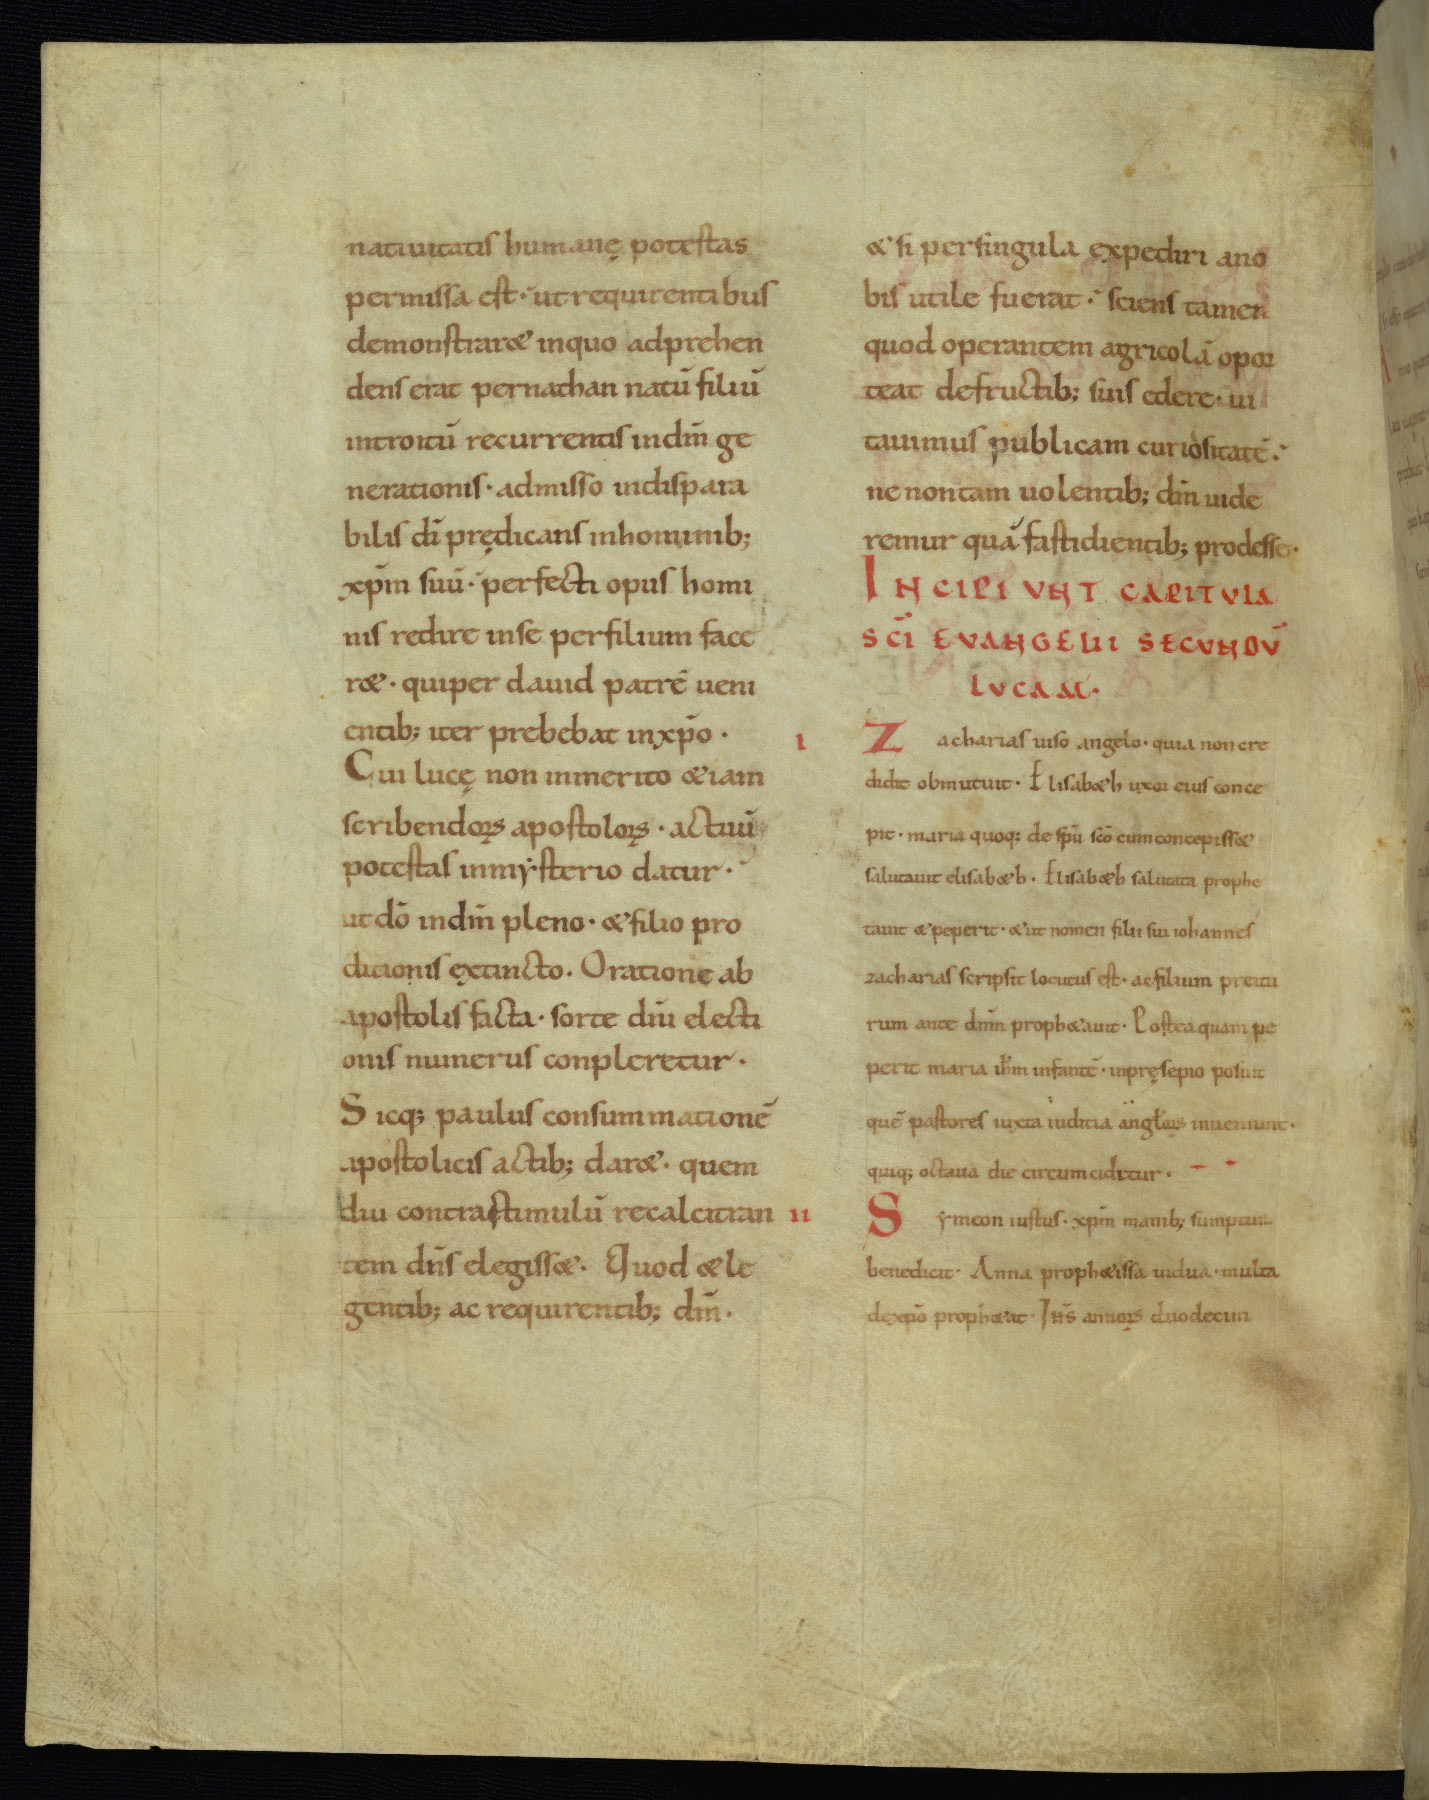 natiuitatis humanę potestas
permissa est· ut requirentibus
demonstraret inquo adprehen
dens erat pernathan natū filiū
introitū recurrentis indm̄ ge
nerationis· admisso indispara
bilis dī prędicans inhominib;
xp̄m suū· perfecti opus homi
nis redire inse perfilium face
ret· quiper dauid patrē ueni
entib; iter prebebat inxp̄o·
Cui lucę non inmerito etiam
scribendoꝝ apostoloꝝ· actuū
potestas inmẏsterio datur·
ut dō indm̄ pleno· et filio pro
ditionis extincto. Oratione ab
apostolis facta· sorte dn̄i electi
onis numerus conpleretur·
Sicq; paulus consummationē
apostolicis actib; daret· quem
diu contrastimulū recalcitran
tem dn̄s elegisset· Quod et le
gentib; ac requirentib; dm̄·
et si persingula expediri ano
bis utile fuerat· sciens tamen
quod operantem agricolā opor
teat defructib; suis edere· ui
tauimus publicam curiositatē·
ne nontam uolentib; dm̄ uide
remur quā fastidientib; prodesse·
INCIPIUNT CAPITULA
SCĪ EUANGELII SECUNDŪ
LUCAM·
I Zacharias uiso angelo· quia non cre
didit obmutuit· Elisabeth uxor eius conce
pit· maria quoq; de spū scō cum concepisset
salutauit elisabeth· Elisabeth salutata prophe
tauit et peperit· et ut nomen filii sui iohannes
zacharias scripsit locutus est· ac filium preitu
rum ante dnm̄ prophetauit· Postea quam pe
perit maria ih̄m infantē· inpręsepio posuit
quē pastores iuxta iuditia angloꝝ inueniunt·
quiq; octaua die circumciditur·
II Sẏmeon iustus· xp̄m manib; sumptum
benedicit· Anna prophetissa uidua· multa
dexp̄o prophetat· Ih̄s annoꝝ duodecim